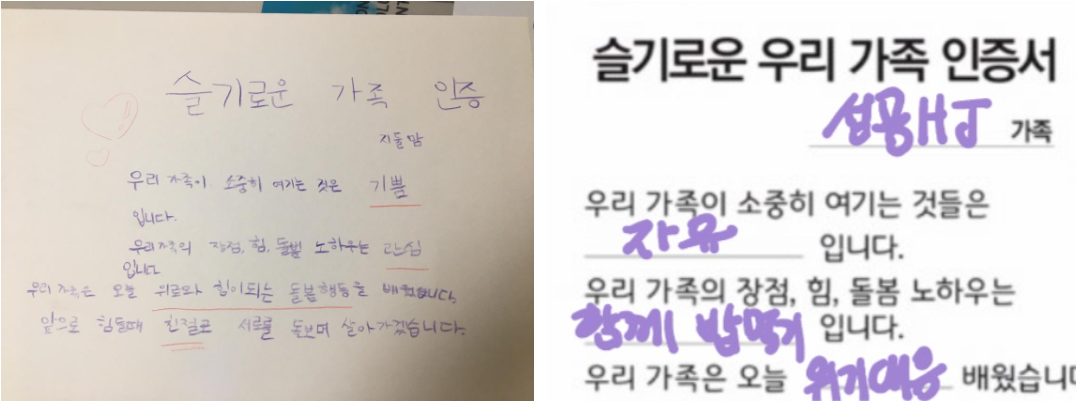 슬기로운 가족 인증
지둘맘
우리 가족이 소중히 여기는 것은 기쁨
입니다.
우리가족의 장점, 힘, 돌봄 노하우는 관심
입니다
우리 가족은 오늘 위로와 힘이되는 돌봄행동을 배웠습니다.
앞으로 힘들때 친절로 서로를 돌보며 살아가겠습니다.
슬기로운 우리 가족 인증서
섭용HJ 가족
우리 가족이 소중히 여기는 것들은
자유 입니다.
우리 가족의 장점, 힘, 돌봄 노하우는
함께 밥먹기 입니다.
우리 가족은 오늘 위기대응 배웠습니다